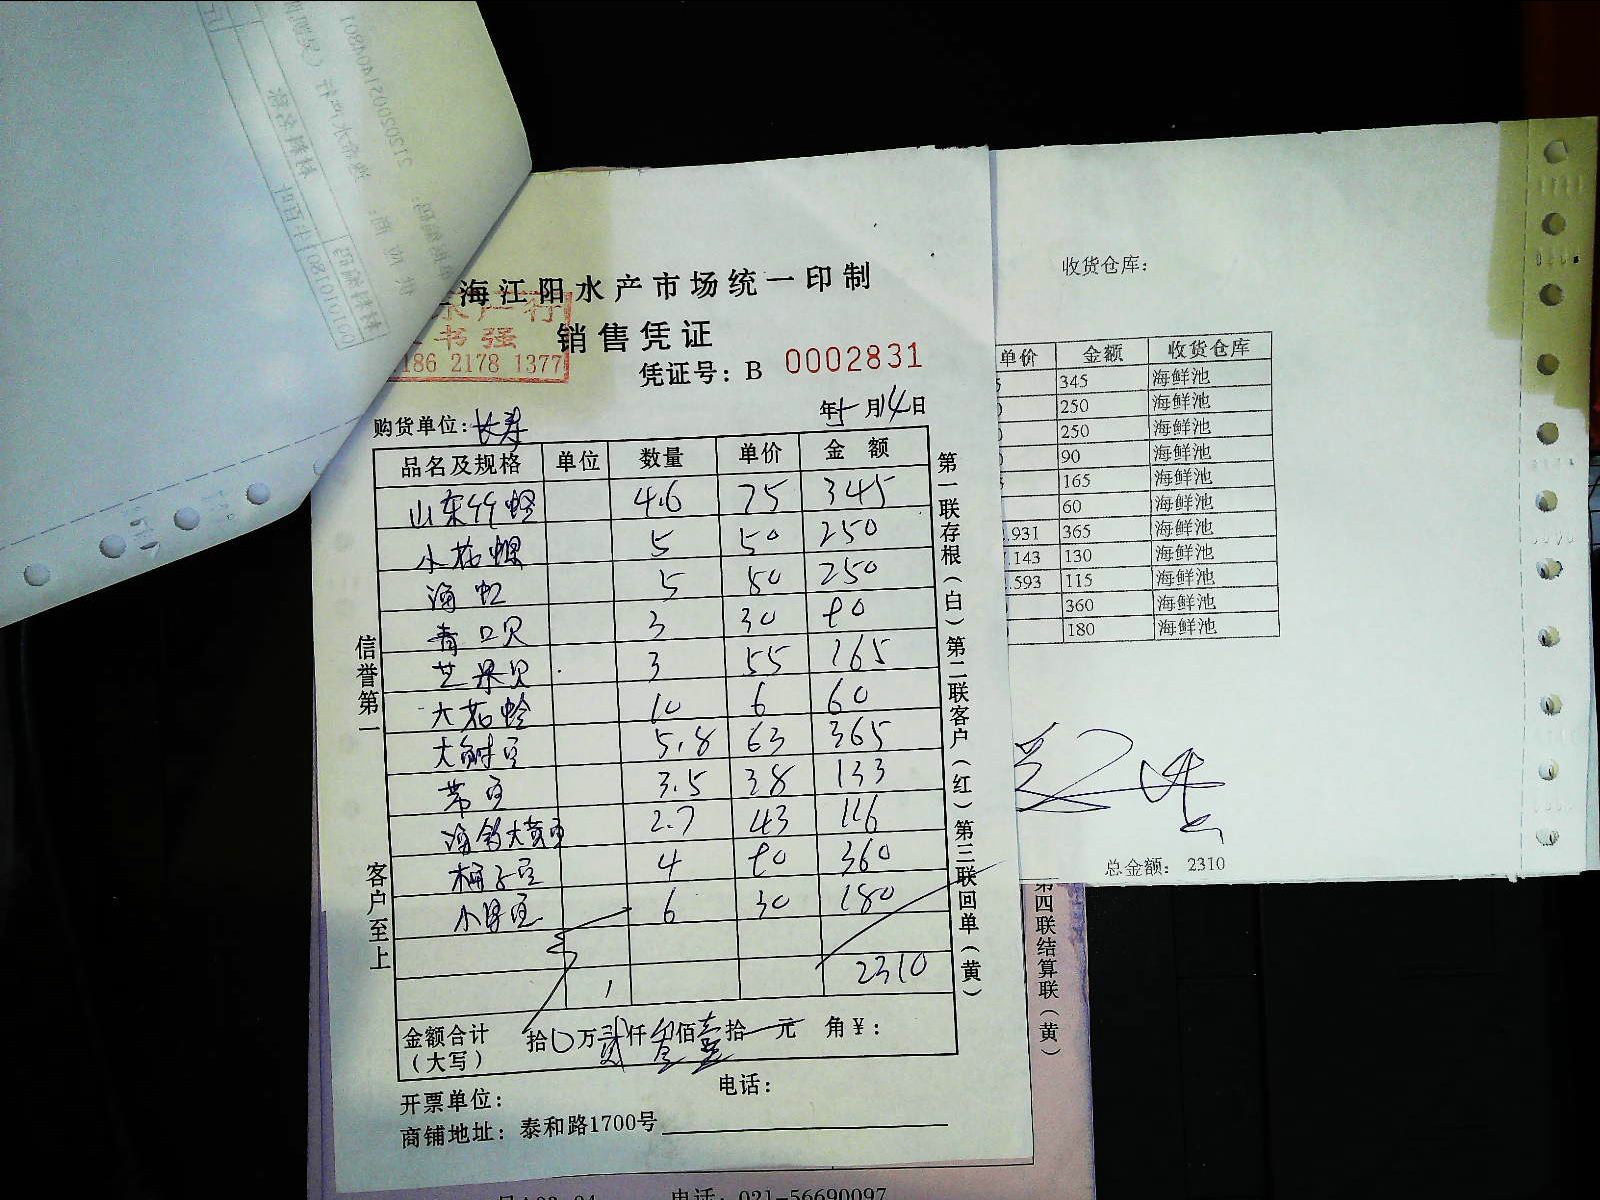 海江阳水产市场统一印制
书强
186 2178 1377
销售凭证
凭证号：B 0002831
购货单位：长寿
年 月14日
品名及规格 单位 数量 单价 金额
山东竹蛏 4.6 75 345
小花螺 5 50 250
海虹 5 50 250
青口贝 3 30 90
芒果贝 3 55 165
大花蛤 10 6 60
大鲜豆 5.8 63 365
带豆 3.5 38 133
2.7 43 116
4 90 360
6 30 180
2310
金额合计（大写） 拾0万贰仟叁佰壹拾 元 角￥：
开票单位：
电话：
商铺地址：泰和路1700号
信誉第一
客户至上
第一联存根（白）第二联客户（红）第三联回单（黄）
第四联结算联（黄）
电话：021-56690097
收货仓库：
单价 金额 收货仓库
345 海鲜池
250 海鲜池
250 海鲜池
90 海鲜池
165 海鲜池
60 海鲜池
.931 365 海鲜池
.143 130 海鲜池
.593 115 海鲜池
360 海鲜池
180 海鲜池
总金额：2310